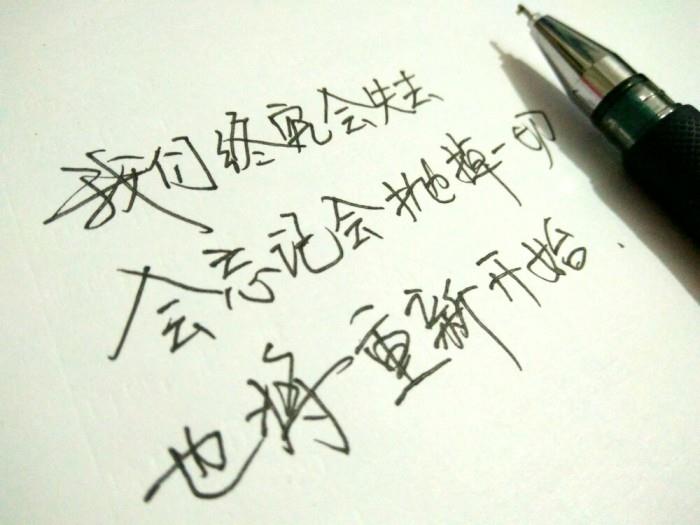 我们终究会失去
会忘记会抛掉一切
也将重新开始.